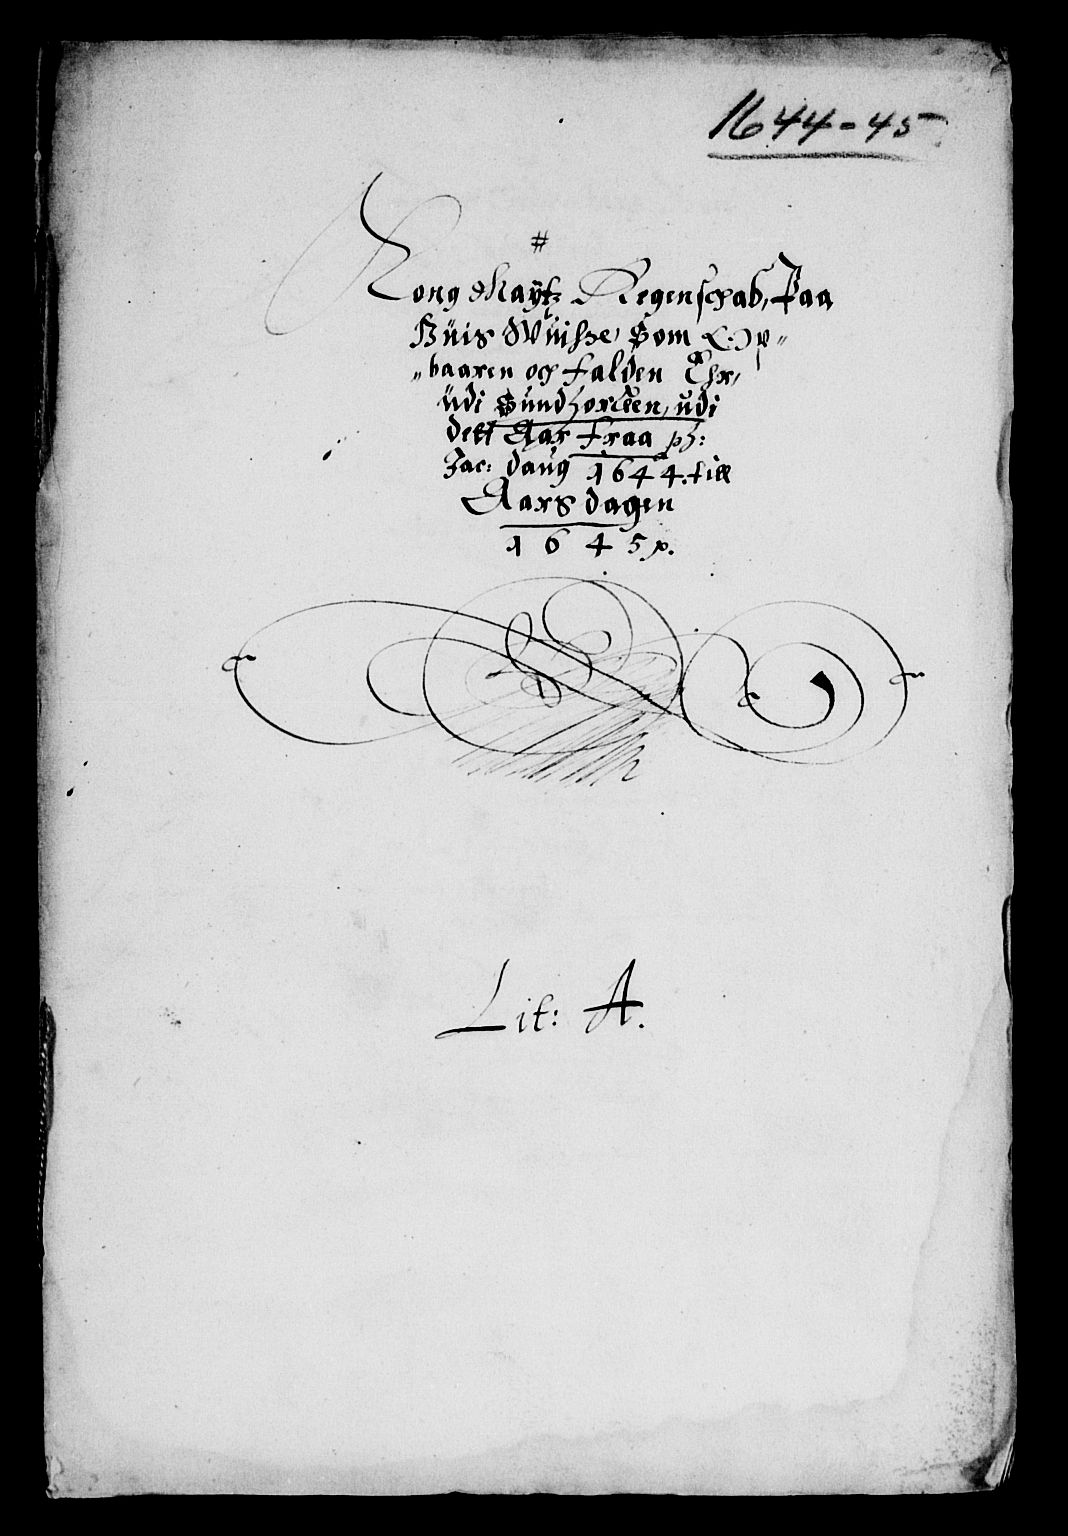 1644-45
#
Kong Maÿtz Regenschab, Paa
Büis Wüisse, Som Op„
„baaren och falden Ehr,
üdi Sündhorlen, üdi
dett Aar fraa ph:
Jac: daug 1644. till
Aarsdagen
1645 p.
Lit: A.